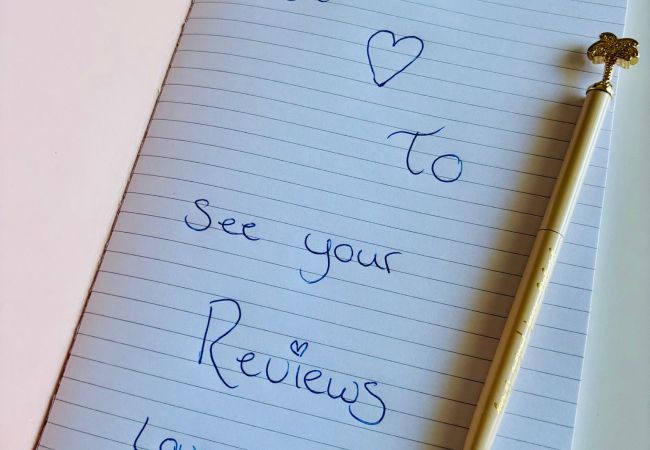 To
See your
Reviews